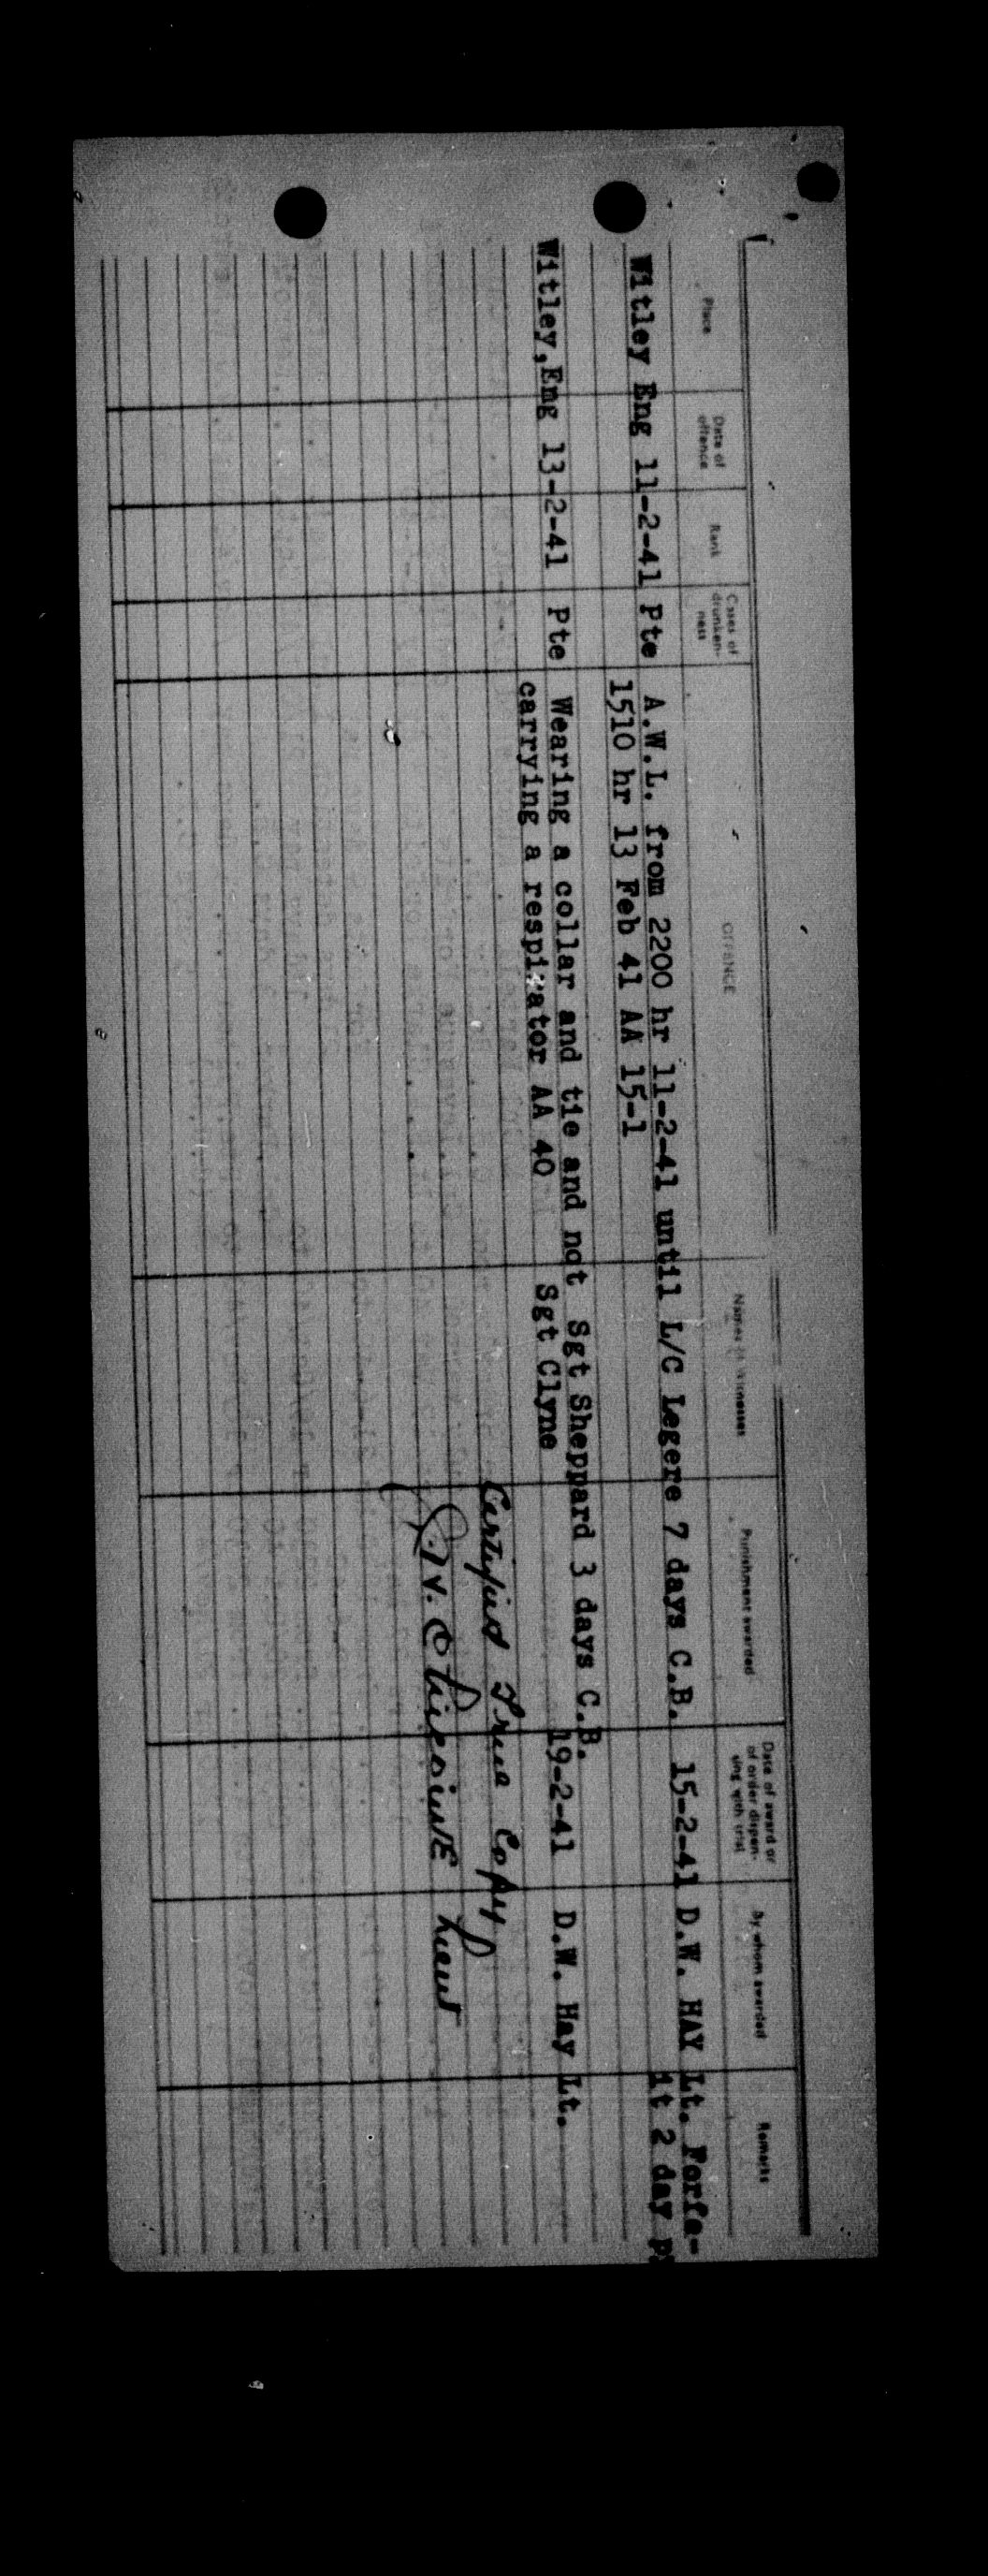 Place Date of offence Rank Cases of drunken-ness OFFENCE Names of Witnesses Punishment awarded Date of award or of order dispen-sing with trial By whom awarded Remarks
Witley Eng 11-2-41 Pte A.W.L. from 2200 hr 11-2-41 until L/C Legere 7 days C.B. 15-2-41 D.W. HAY Lt. Forfe-
1510 hr 13 Feb 41 AA 15-1 it 2 day
Witley,Eng 13-2-41 Pte Wearing a collar and tie and not Sgt Sheppard 3 days C.B. 19-2-41 D.W. Hay Lt.
carrying a respirator AA 40 Sgt Clyne
Certified True Copy
Lieut